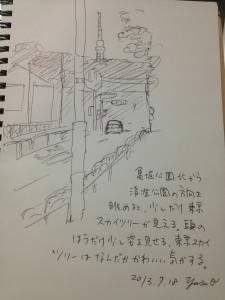 葛西公園北から
清澄公園の方向を
眺めると、少しだけ東京
スカイツリーが見える。頭の
ほうだけ少し姿を見せる、東京スカイ
ツリーはなんだかかわいい気がする。
2013.7.18